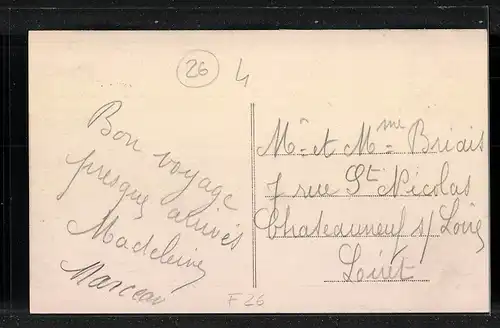 26
4
Bon voyage
presque arrivés
Madeleine
Marceau
Mr et Mme Briais
7 rue St Nicolas
Chateauneuf s/ Loire
Loiret
F26